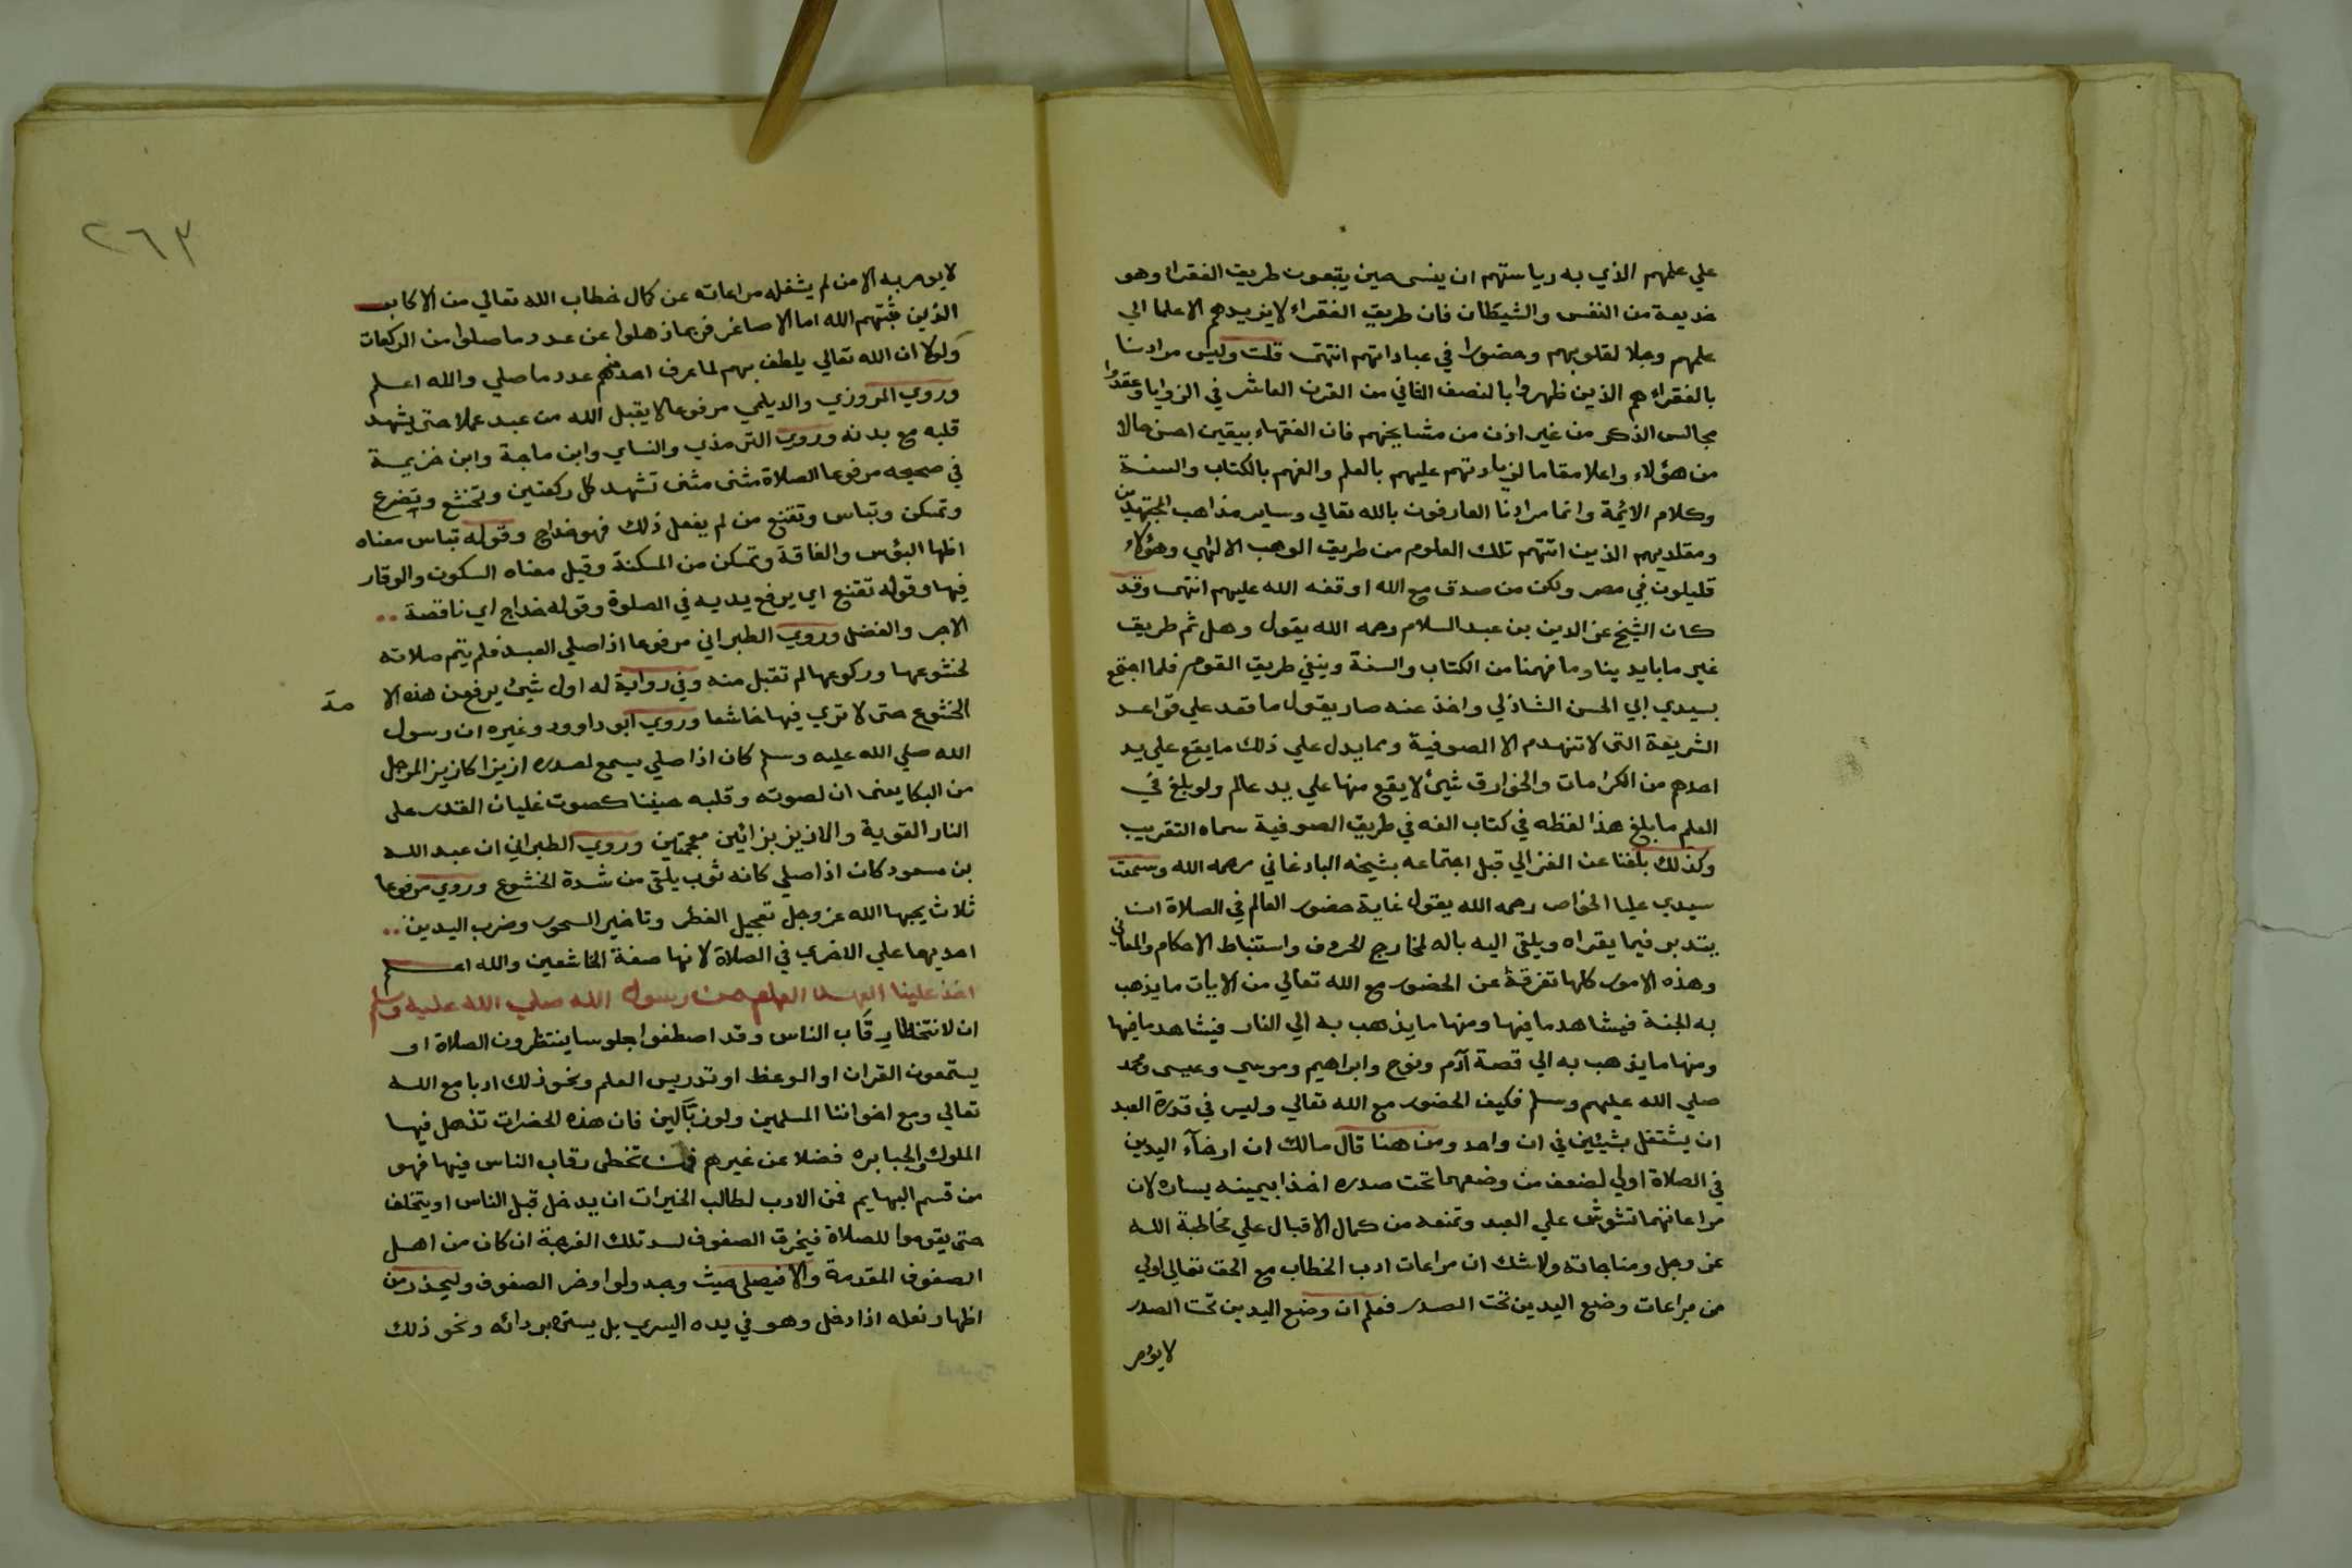 علي علمهم الذي به رياستهم ان ينسي حين يتبعون طريق الفقرا وهو
خديعة من النفس والشيطان فان طريق الفقراء لا يزيدهم الا علما الي
علمهم وجلا لقلوبهم وحضورا في عباداتهم انتهي قلت وليس مرادنا
بالفقراء هم الذين ظهروا بالنصف الثاني من القرن العاشر في الزوايا وعقدوا
مجالس الذكر من غير اذن من مشايخهم فان الفقهاء بيقين احسن حالا
من هؤلاء واعلا مقاما لزيادتهم عليهم بالعلم والفهم بالكتاب والسنة
وكلام الائمة وانما مرادنا العارفون بالله تعالي وساير مذاهب المجتهدين
ومقلديهم الذين اتتهم تلك العلوم من طريق الوهب الالهي وهؤلاء
قليلون في مصر ولكن من صدق مع الله اوقفه الله عليهم انتهى وقد
كان الشيخ عز الدين بن عبد السلام رحمه الله يقول وهل ثم طريق
غير ما بايدينا وما فهمنا من الكتاب والسنة وينفي طريق القوم فلما اجتمع
بسيدي ابي الحسن الشاذلي واخذ عنه صار يقول ما قعد علي قواعد
الشريعة التي لا تنهدم الا الصوفية ومما يدل علي ذلك ما يقع علي يد
احدهم من الكرامات والخوارق شيئ لا يقع منها علي يد عالم ولو بلغ في
العلم ما بلغ هذا لفظه في كتاب الفه في طريق الصوفية سماه التقريب
وكذلك بلغنا عن الغزالي قبل اجتماعه بشيخه البادغاني رحمه الله وسمعت
سيدي عليا الخواص رحمه الله يقول غاية حضور العالم في الصلاة ان
يتدبر فيما يقراه ويلقي اليه باله لمخارج الحروف واستنباط الاحكام والمعاني
وهذه الامور كلها تفرقة عن الحضور مع الله تعالي من الايات ما يذهب
به الجنة فيشاهد ما فيها ومنها ما يذهب به الي النار فيشاهد ما فيها
ومنها ما يذهب به الي قصة آدم ونوح وابراهيم وموسي وعيسى ومحمد
صلي الله عليهم وسلم فكيف الحضور مع الله تعالي وليس في قدرة العبد
ان يشتغل بشيئين في ان واحد ومن هنا قال مالك ان ارخآء اليدين
في الصلاة اولي لضعف من وضعهما تحت صدره اخذا بيمينه يساره لان
مراعاتهما تشوش علي العبد وتمنعه من كمال الاقبال علي مخاطبة الله
عز وجل ومناجاته ولا شك ان مراعات ادب الخطاب مع الحق تعالي اولي
من مراعات وضع اليدين تحت الصدر فعلم ان وضع اليدين تحت الصدر
لا يؤمر
٢٦٣
لا يومر به الا من لم يشغله مراعاته عن كمال خطاب الله تعالي من الاكابر
الذين ثبتهم الله اما الاصاغر فربما ذهلوا عن عدد ما صلوا من الركعات
ولولا ان الله تعالي يلطف بهم لما عرف احدهم عدد ما صلي والله اعلم
وروي المروزي والديلمي مرفوعا لا يقبل الله من عبد عملا حتى يشهد
قلبه مع بدنه وروي الترمذي والنساي وابن ماجة وابن خزيمة
في صحيحه مرفوعا الصلاة مثنى مثنى تشهد كل ركعتين وتخشع وتضرع
وتمسكن وتباس وتقنع من لم يفعل ذلك فهو خداج وقوله تباس معناه
اظها البؤس والفاقة وتمسكن من المسكنة وقيل معناه السكون والوقار
فيها وقوله تقنع اي يرفع يديه في الصلوة وقوله خداج اي ناقصة
الاجر والفضل وروي الطبراني مرفوعا اذا صلي العبد فلم يتم صلاته
لخشوعها وركوعها لم تقبل منه وفي رواية له اول شيئ يرفع من هذه الا مة
الخشوع حتى لا تري فيها خاشعا وروي ابو داوود وغيره ان رسول
الله صلي الله عليه وسلم كان اذا صلي يسمع لصدره ازيزا كازيز المرجل
من البكا يعنى ان لصوته وقلبه حنينا كصوت غليان القدر على
النار القوية والازيز بزائين معجمتين وروي الطبراني ان عبد الله
بن مسعود كان اذا صلي كانه ثوب يلقي من شدة الخشوع وروي مرفوعا
ثلاث يحبها الله عز وجل تعجيل الفطر وتاخير السحور وضرب اليدين
احديهما علي الاخري في الصلاة لانها صفة الخاشعين والله اعلم
اخذ علينا العهد العام من رسول الله صلي الله عليه وسلم
ان لا نتخطا رقاب الناس وقد اصطفوا جلوسا ينتظرون الصلاة او
يستمعون القران او الوعظ او تدريس العلم ونحو ذلك ادبا مع الله
تعالي ومع اخواننا المسلمين ولو زبالين فان هذه الحضرات تذهل فيها
الملوك والجبابره فضلا عن غيرهم فمن تخطى رقاب الناس فيها فهو
من قسم البهايم فمن الادب لطالب الخيرات ان يدخل قبل الناس او يتخلف
حتى يقوموا للصلاة فيخرق الصفوف لسد تلك الفرجة ان كان من اهل
الصفوف المقدمة والا فيصلي حيث وجد ولو اواخر الصفوف وليحذر من
اظهار نعله اذا دخل وهو في يده اليسري بل يستره بردائه ونحو ذلك